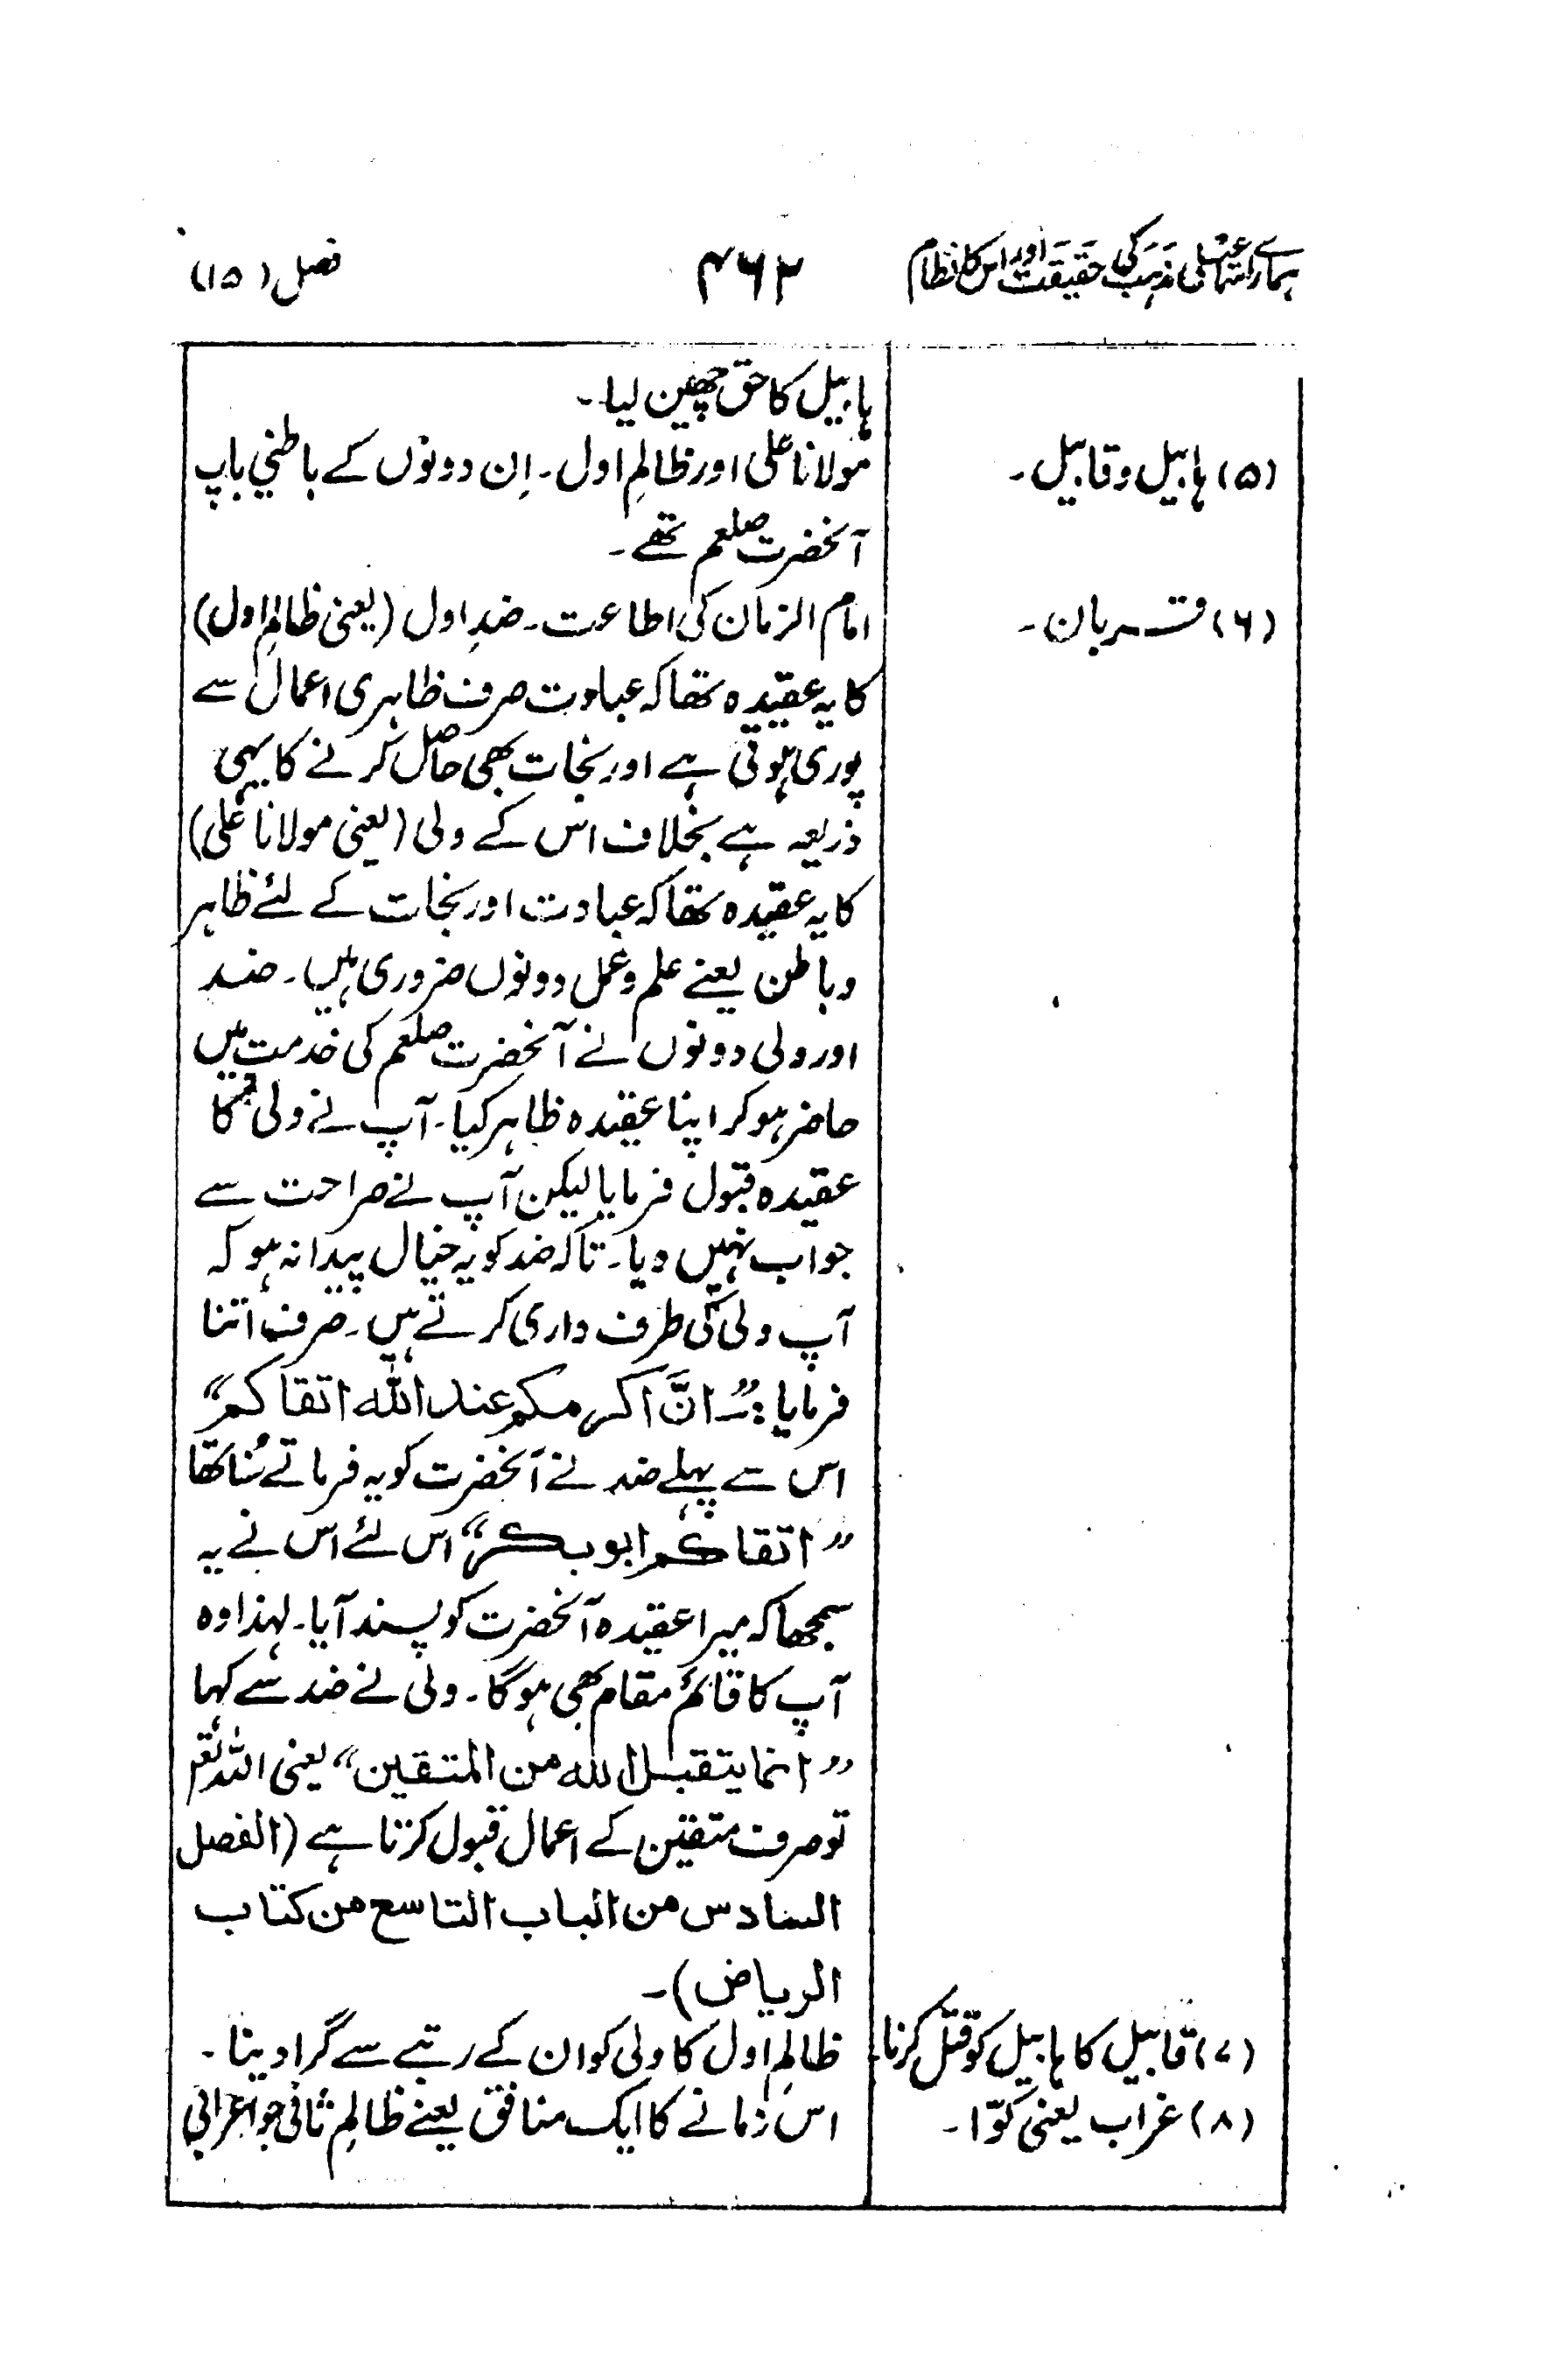 ہمارے اسماعیلی مذہب کی حقیقت اور اس کا نظام
۴۶۲
فصل (۱۵)
ہابیل کا حق چھین لیا۔
(۵) ہابیل و قابیل۔
مولانا علی اور ظالمِ اول۔ اِن دونوں کے باطنی باپ
آنحضرت صلعم تھے۔
(۶) قربان۔
امام الزمان کی اطاعت۔ ضدِ اول (یعنی ظالمِ اول)
کا یہ عقیدہ تھا کہ عبادت صرف ظاہری اعمال سے
پوری ہوتی ہے اور نجات بھی حاصل کرنے کا یہی
ذریعہ ہے بخلاف اس کے ولی (یعنی مولانا علی)
کا یہ عقیدہ تھا کہ عبادت اور نجات کے لئے ظاہر
و باطن یعنے علم و عمل دونوں ضروری ہیں۔ ضد
اور ولی دونوں نے آنحضرت صلعم کی خدمت میں
حاضر ہوکر اپنا عقیدہ ظاہر کیا۔ آپ نے ولی کا
عقیدہ قبول فرمایا لیکن آپ نے صراحت سے
جواب نہیں دیا۔ تاکہ ضد کو یہ خیال پیدا نہ ہو کہ
آپ ولی کی طرف داری کرتے ہیں۔ صرف اتنا
فرمایا :۔ ”انَّ اکرمکم عند اللہ اتقاکم“
اس سے پہلے ضد نے آنحضرت کو یہ فرماتے سُنا تھا
”اتقاکم ابوبکر“ اس لئے اس نے یہ
سمجھا کہ میرا عقیدہ آنحضرت کو پسند آیا۔ لہذا وہ
آپ کا قائم مقام بھی ہوگا۔ ولی نے ضد سے کہا
”انما یتقبل اللہ من المتقین“ یعنی اللہ تعم
تو صرف متقین کے اعمال قبول کرتا ہے (الفصل
السادس من الباب التاسع من کتاب
الریاض)۔
(۷) قابیل کا ہابیل کو قتل کرنا۔
ظالمِ اول کا ولی کو ان کے رتبے سے گرا دینا۔
(۸) غراب یعنی کوّا۔
اس زمانے کا ایک منافق یعنے ظالمِ ثانی جو اعرابی